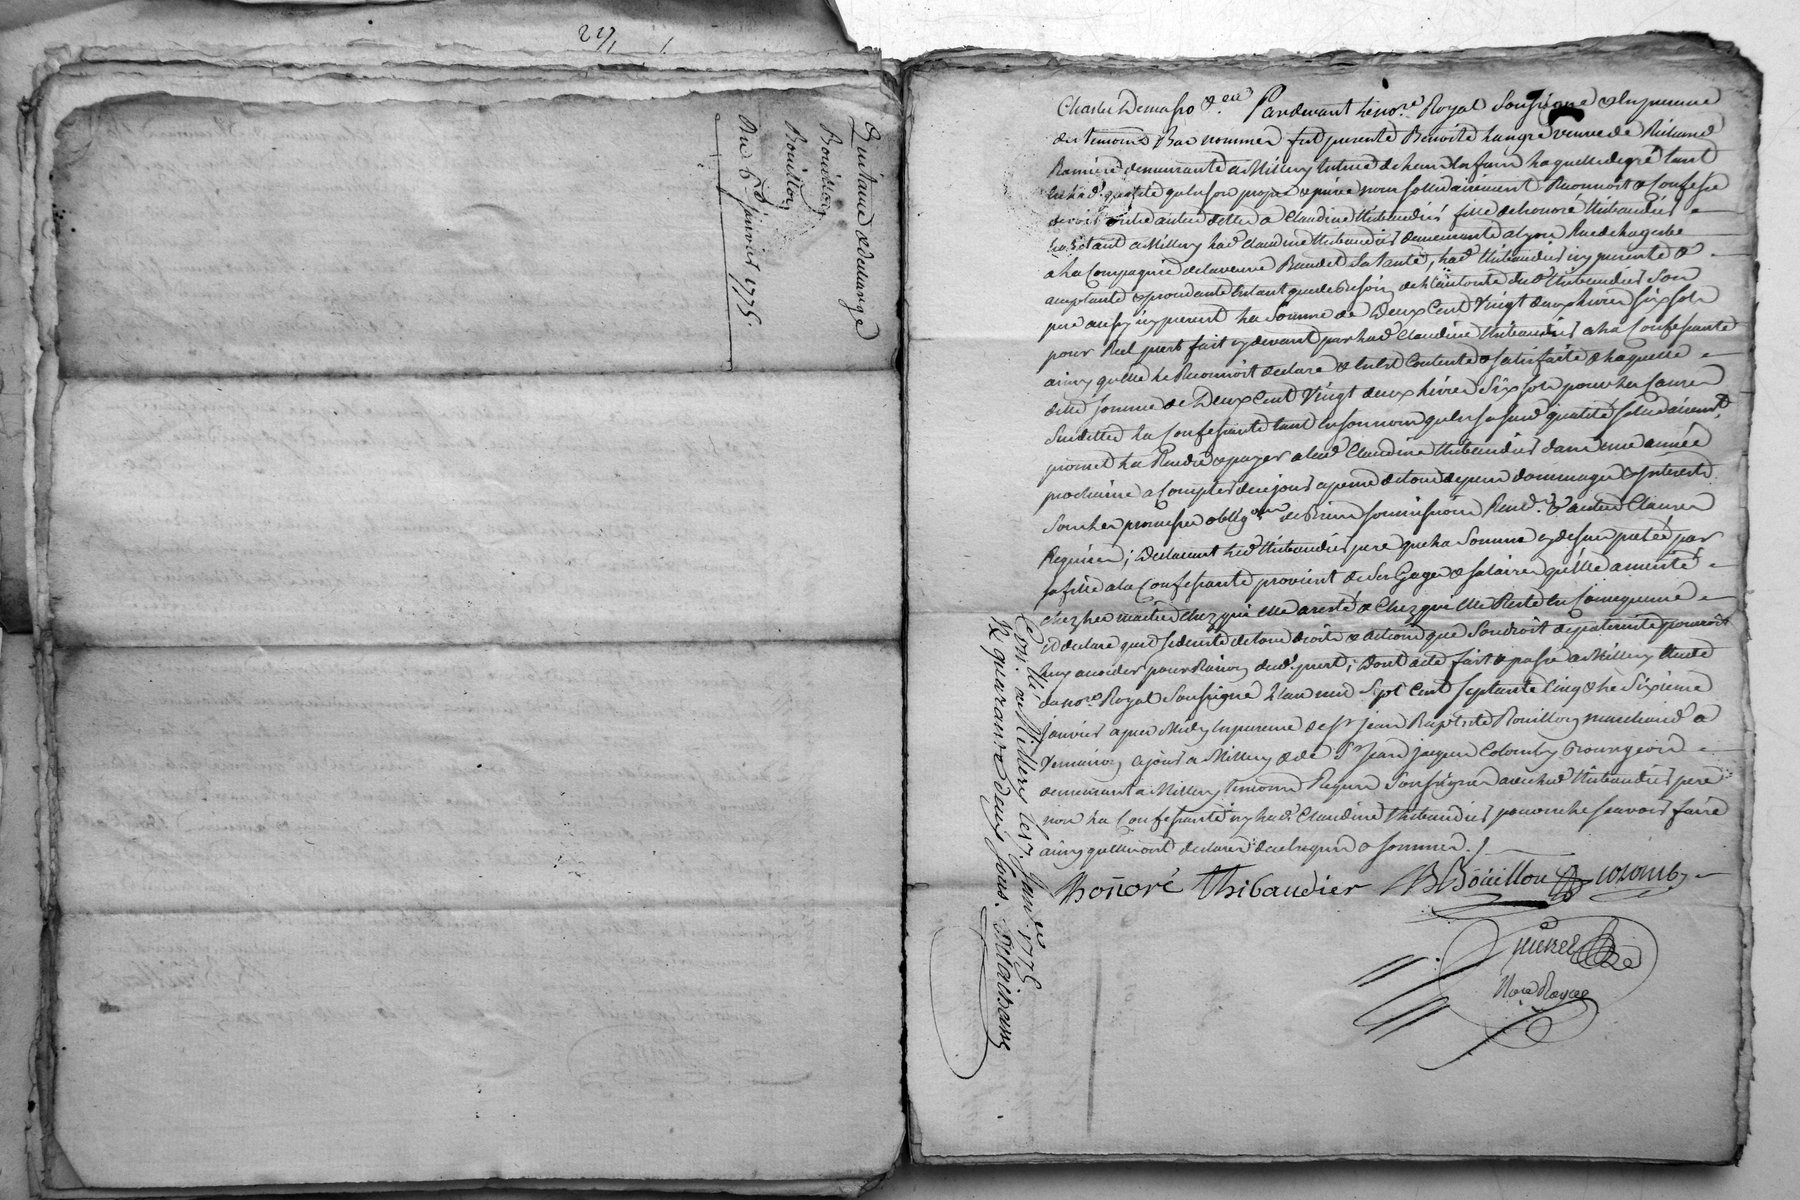 22/1
Quittance & décharge
Bouillon
Bouillon
Du 5e janvier 1775.
Pardevant le nore. Royal Soussigné & En presence
des temoins Bas nommés fut presente Benoite veuve de Richard
demeurante a Millery tutrice de leurs Enfans laquelle degré tant
En lad. qualité qu'en son propre & privé nom sollidairement Reconnoit & Confesse
devoir a Claudine Thibaudier fille de honoré Thibaudier
habitant a Millery lad. Claudine Thibaudier demeurante a Lyon Rue de
a la Compagnie de la veuve Baudet sa tante, lad. Thibaudier icy presente &
acceptante & procedante En tant que de Besoin de l'autorité dud. Thibaudier Son
pere aussy icy present la Somme de Deux Cent Vingt deux livres six sols
pour Reel prest fait cy devant par lad. Claudine Thibaudier a la Confessante
ainsy qu'elle le Reconnoit declare & s'en Contente & satisfaite & laquelle
ditte somme de Deux Cent Vingt deux livres Six sols pour les Causes
Susdittes la Confessante tant En son nom qu'En sa susd. qualité sollidairemt.
promet la Rendre & payer a lad. Claudine Thibaudier dans une année
prochaine a Compter de ce jour a peine de tous depens dommages & Interests
Sous les promesses oblig.on de Biens soumissions Rend. & autres Clauses
Requises; Declarant led. Thibaudier pere que la Somme cy dessus pretée par
sa fille a la Confessante provient de Ses Gages & salaires qu'elle a merité
chez les maitres chez qui elle a resté & Chez qui elle Reste En Consequence
Et declare qu'il se de tous droits & actions que Son droit de paternité pourroit
luy accorder pour Raison dud. prest; Dont acte fait & passé a Millery Etude
du nore. Royal Soussigné L'an mil Sept Cent septante Cinq & le Sixieme
Janvier apres Midy En presence de sr. jean Baptiste Bouillon marchand a
Vernaison a jour a Millery & de Sr. Jean jacques Colomby Bourgeois
demeurant a Millery temoins Requis Soussignés avec led. Thibaudier pere
non la Confessante ny lad. Claudine Thibaudier pour ne le scavoir faire
ainsy qu'elles ont declaré de ce Enquises & sommées./.
honoré Thibaudier JB Bouillon Colomby
Nore Royal
Con. llé a Millery le 17. Janv. er 1775
R quarante deux sous. Delaisamé